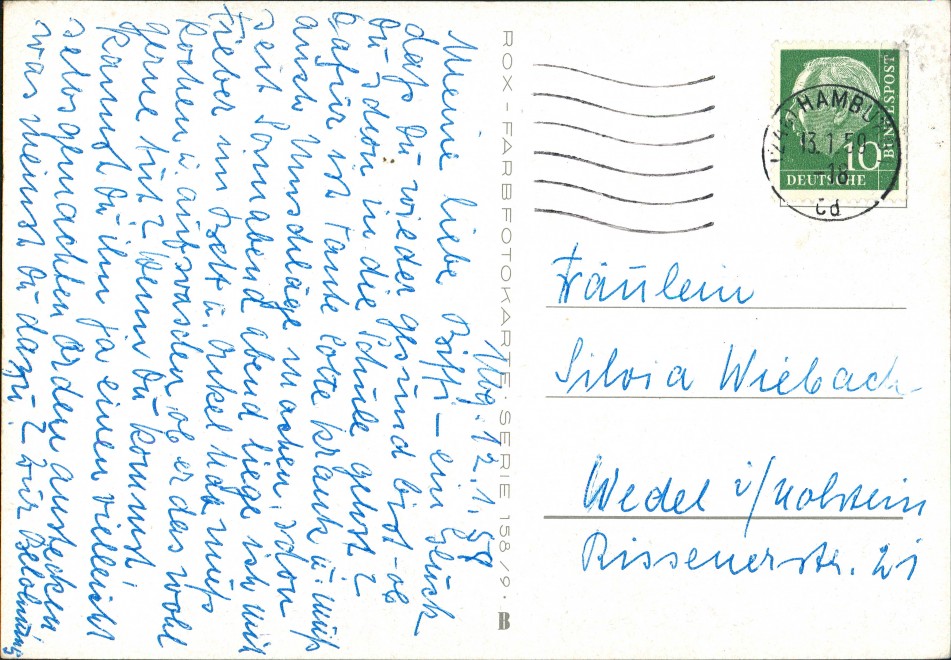 Hbg. 12.1.59
Meine liebe Biffi – ein Glück
daß Du wieder gesund bist – ob
Du schon in die Schule gehst?
Dafür ist Tante Lotte krank u. muß
auch Umschläge machen, schon
seit Sonnabend abend liege ich mit
Fieber im Bett u. Onkel muß
kochen u. aufwaschen, ob er das wohl
gerne tut? Wenn Du kommst,
kannst Du ihm ja einen vielleicht
selbsgemachten Orden anstecken
was meinst Du dazu? Zur Belohnung
ROX - FARBFOTOKARTE · SERIE 158/9 · B
HAMBU
13.1.59
-18
cd
BUNDESPOST
10
DEUTSCHE
Fräulein
Silvia Wiebach
Wedel i/Holstein
Rissenerstr. 21